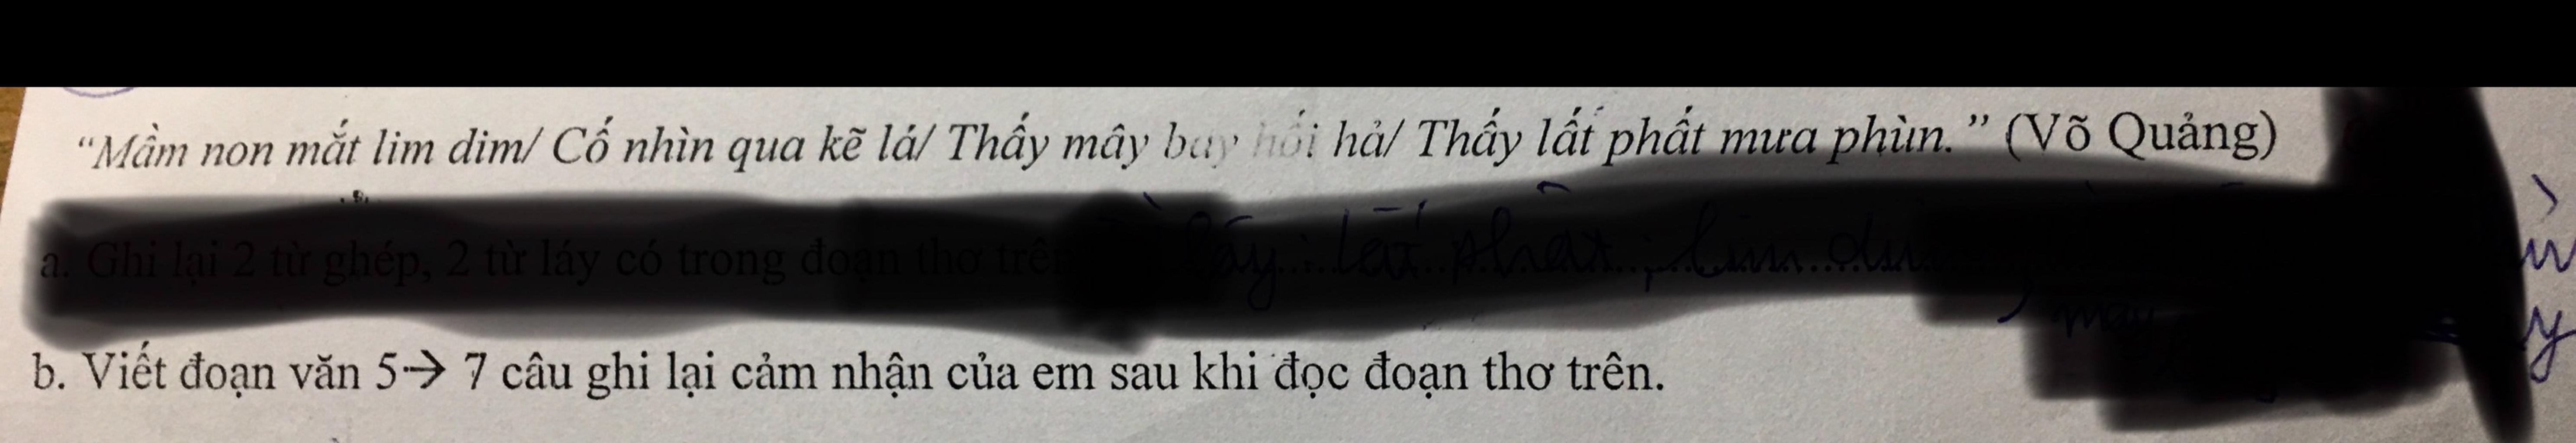 “Mầm non mắt lim dim/ Cố nhìn qua kẽ lá/ Thấy mây bay hối hả/ Thấy lất phất mưa phùn.” (Võ Quảng)
a. Ghi lại 2 từ ghép, 2 từ láy có trong đoạn thơ trên láy: lất phất, lim dim
b. Viết đoạn văn 5→ 7 câu ghi lại cảm nhận của em sau khi đọc đoạn thơ trên.